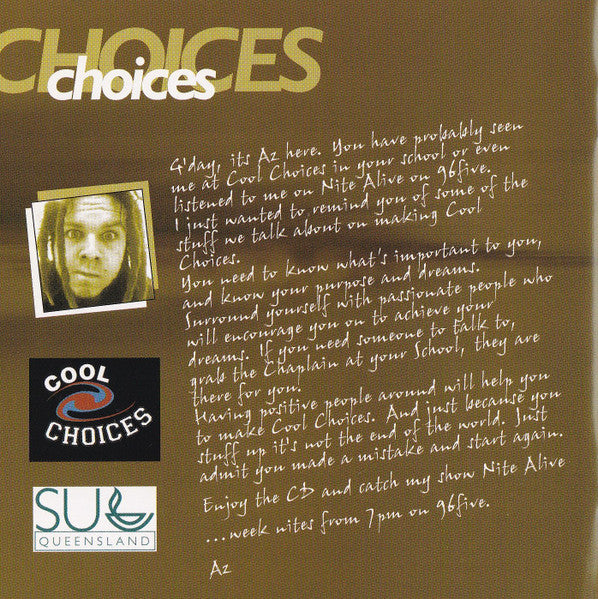 CHOICES
choices
G'day, its Az here. You have probably seen
me at Cool Choices in your school or even
listened to me on Nite Alive on 96five.
I just wanted to remind you of some of the
stuff we talk about on making Cool
Choices.
You need to know what's important to you,
and know your purpose and dreams.
Surround yourself with passionate people who
will encourage you on to achieve your
dreams. If you need someone to talk to,
grab the Chaplain at your School, they are
there for you!
Having positive people around will help you
to make Cool Choices. And just because you
stuff up it's not the end of the world. Just
admit you made a mistake and start again.
Enjoy the CD and catch my show Nite Alive
...week nites from 7pm on 96five.
Az
COOL
CHOICES
SU
QUEENSLAND